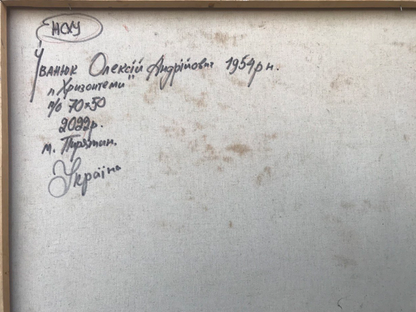 НСХУ
Іванюк Олексій Андрійович 1954р н.
"Хризонтеми"
п/о 70×50
2022р.
м. Пирятин.
Україна